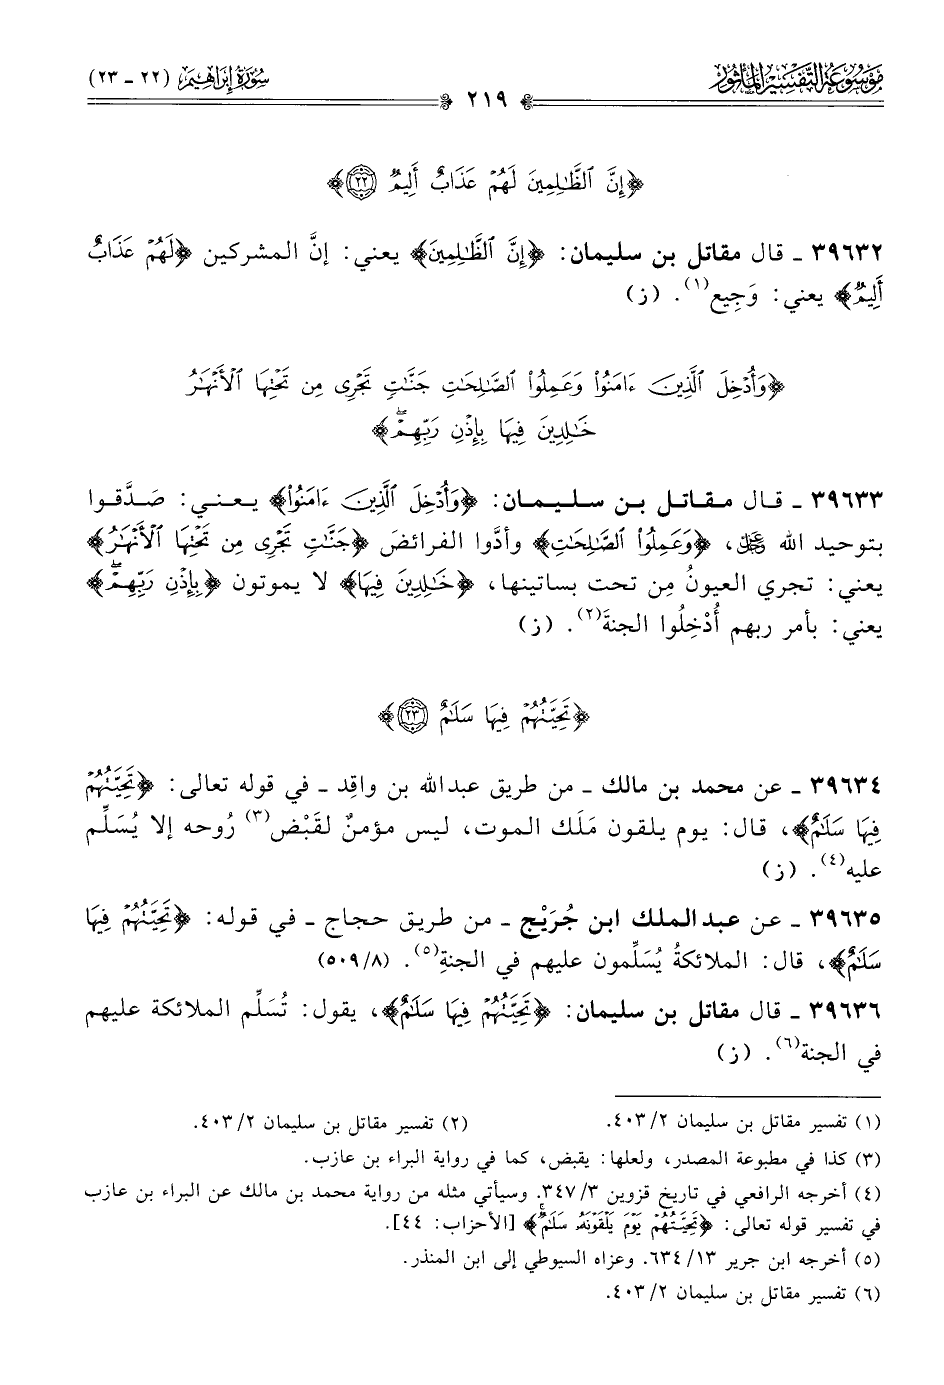 موسوعة التفسير المأثور
سورة إبراهيم (٢٢ - ٢٣)
٢١٩
﴿إِنَّ ٱلظَّٰلِمِينَ لَهُمۡ عَذَابٌ أَلِيمٞ ٢٢﴾
٣٩٦٣٢ ـ قال مقاتل بن سليمان: ﴿إِنَّ ٱلظَّٰلِمِينَ﴾ يعني: إنَّ المشركين ﴿لَهُمۡ عَذَابٌ
أَلِيمٞ﴾ يعني: وَجِيع(١). (ز)
﴿وَأُدۡخِلَ ٱلَّذِينَ ءَامَنُواْ وَعَمِلُواْ ٱلصَّٰلِحَٰتِ جَنَّٰتٖ تَجۡرِي مِن تَحۡتِهَا ٱلۡأَنۡهَٰرُ
خَٰلِدِينَ فِيهَا بِإِذۡنِ رَبِّهِمۡۖ﴾
٣٩٦٣٣ ـ قال مقاتل بن سليمان: ﴿وَأُدۡخِلَ ٱلَّذِينَ ءَامَنُواْ﴾ يعني: صَدَّقوا
بتوحيد الله ﷻ، ﴿وَعَمِلُواْ ٱلصَّٰلِحَٰتِ﴾ وأدَّوا الفرائضَ ﴿جَنَّٰتٖ تَجۡرِي مِن تَحۡتِهَا ٱلۡأَنۡهَٰرُ﴾
يعني: تجري العيونُ مِن تحت بساتينها، ﴿خَٰلِدِينَ فِيهَا﴾ لا يموتون ﴿بِإِذۡنِ رَبِّهِمۡۖ﴾
يعني: بأمر ربهم أُدْخِلُوا الجنةَ(٢). (ز)
﴿تَحِيَّتُهُمۡ فِيهَا سَلَٰمٌ ٢٣﴾
٣٩٦٣٤ ـ عن محمد بن مالك ـ من طريق عبدالله بن واقِد ـ في قوله تعالى: ﴿تَحِيَّتُهُمۡ
فِيهَا سَلَٰمٌ﴾، قال: يوم يلقون مَلَك الموت، ليس مؤمنٌ لقَبْض(٣) رُوحه إلا يُسَلِّم
عليه(٤). (ز)
٣٩٦٣٥ ـ عن عبدالملك ابن جُرَيْج ـ من طريق حجاج ـ في قوله: ﴿تَحِيَّتُهُمۡ فِيهَا
سَلَٰمٌ﴾، قال: الملائكةُ يُسَلِّمون عليهم في الجنةِ(٥). (٨/٥٠٩)
٣٩٦٣٦ ـ قال مقاتل بن سليمان: ﴿تَحِيَّتُهُمۡ فِيهَا سَلَٰمٌ﴾، يقول: تُسَلِّم الملائكة عليهم
في الجنة(٦). (ز)
(١) تفسير مقاتل بن سليمان ٢/٤٠٣.
(٢) تفسير مقاتل بن سليمان ٢/٤٠٣.
(٣) كذا في مطبوعة المصدر، ولعلها: يقبض، كما في رواية البراء بن عازب.
(٤) أخرجه الرافعي في تاريخ قزوين ٣/٣٤٧. وسيأتي مثله من رواية محمد بن مالك عن البراء بن عازب
في تفسير قوله تعالى: ﴿تَحِيَّتُهُمۡ يَوۡمَ يَلۡقَوۡنَهُۥ سَلَٰمٞۚ﴾ [الأحزاب: ٤٤].
(٥) أخرجه ابن جرير ١٣/٦٣٤. وعزاه السيوطي إلى ابن المنذر.
(٦) تفسير مقاتل بن سليمان ٢/٤٠٣.